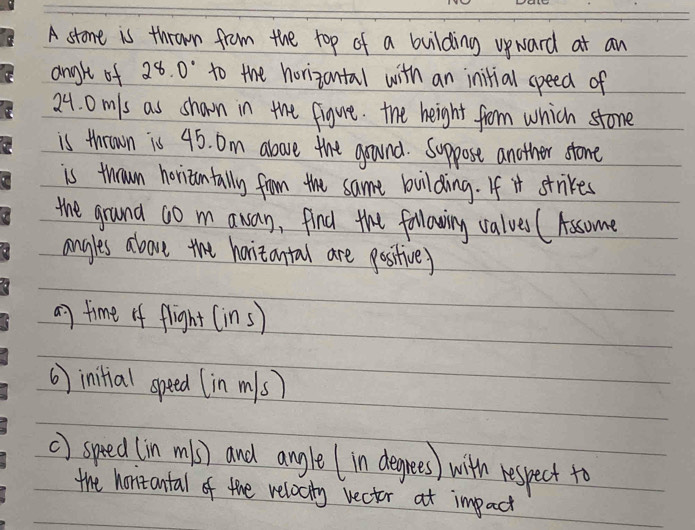 NO Date
A stone is thrown from the top of a building upward at an
angle of 28.0° to the horizontal with an initial speed of
24.0 m/s as shown in the figure. the height from which stone
is thrown is 45.0m above the ground. Suppose another stone
is thrown horizontally from the same building. If it strikes
the ground 60 m away, find the following values (Assume
angles above the horizontal are positive)
a) time of flight (in s)
b) initial speed (in m/s)
c) speed (in m/s) and angle (in degrees) with respect to
the horizontal of the velocity vector at impact